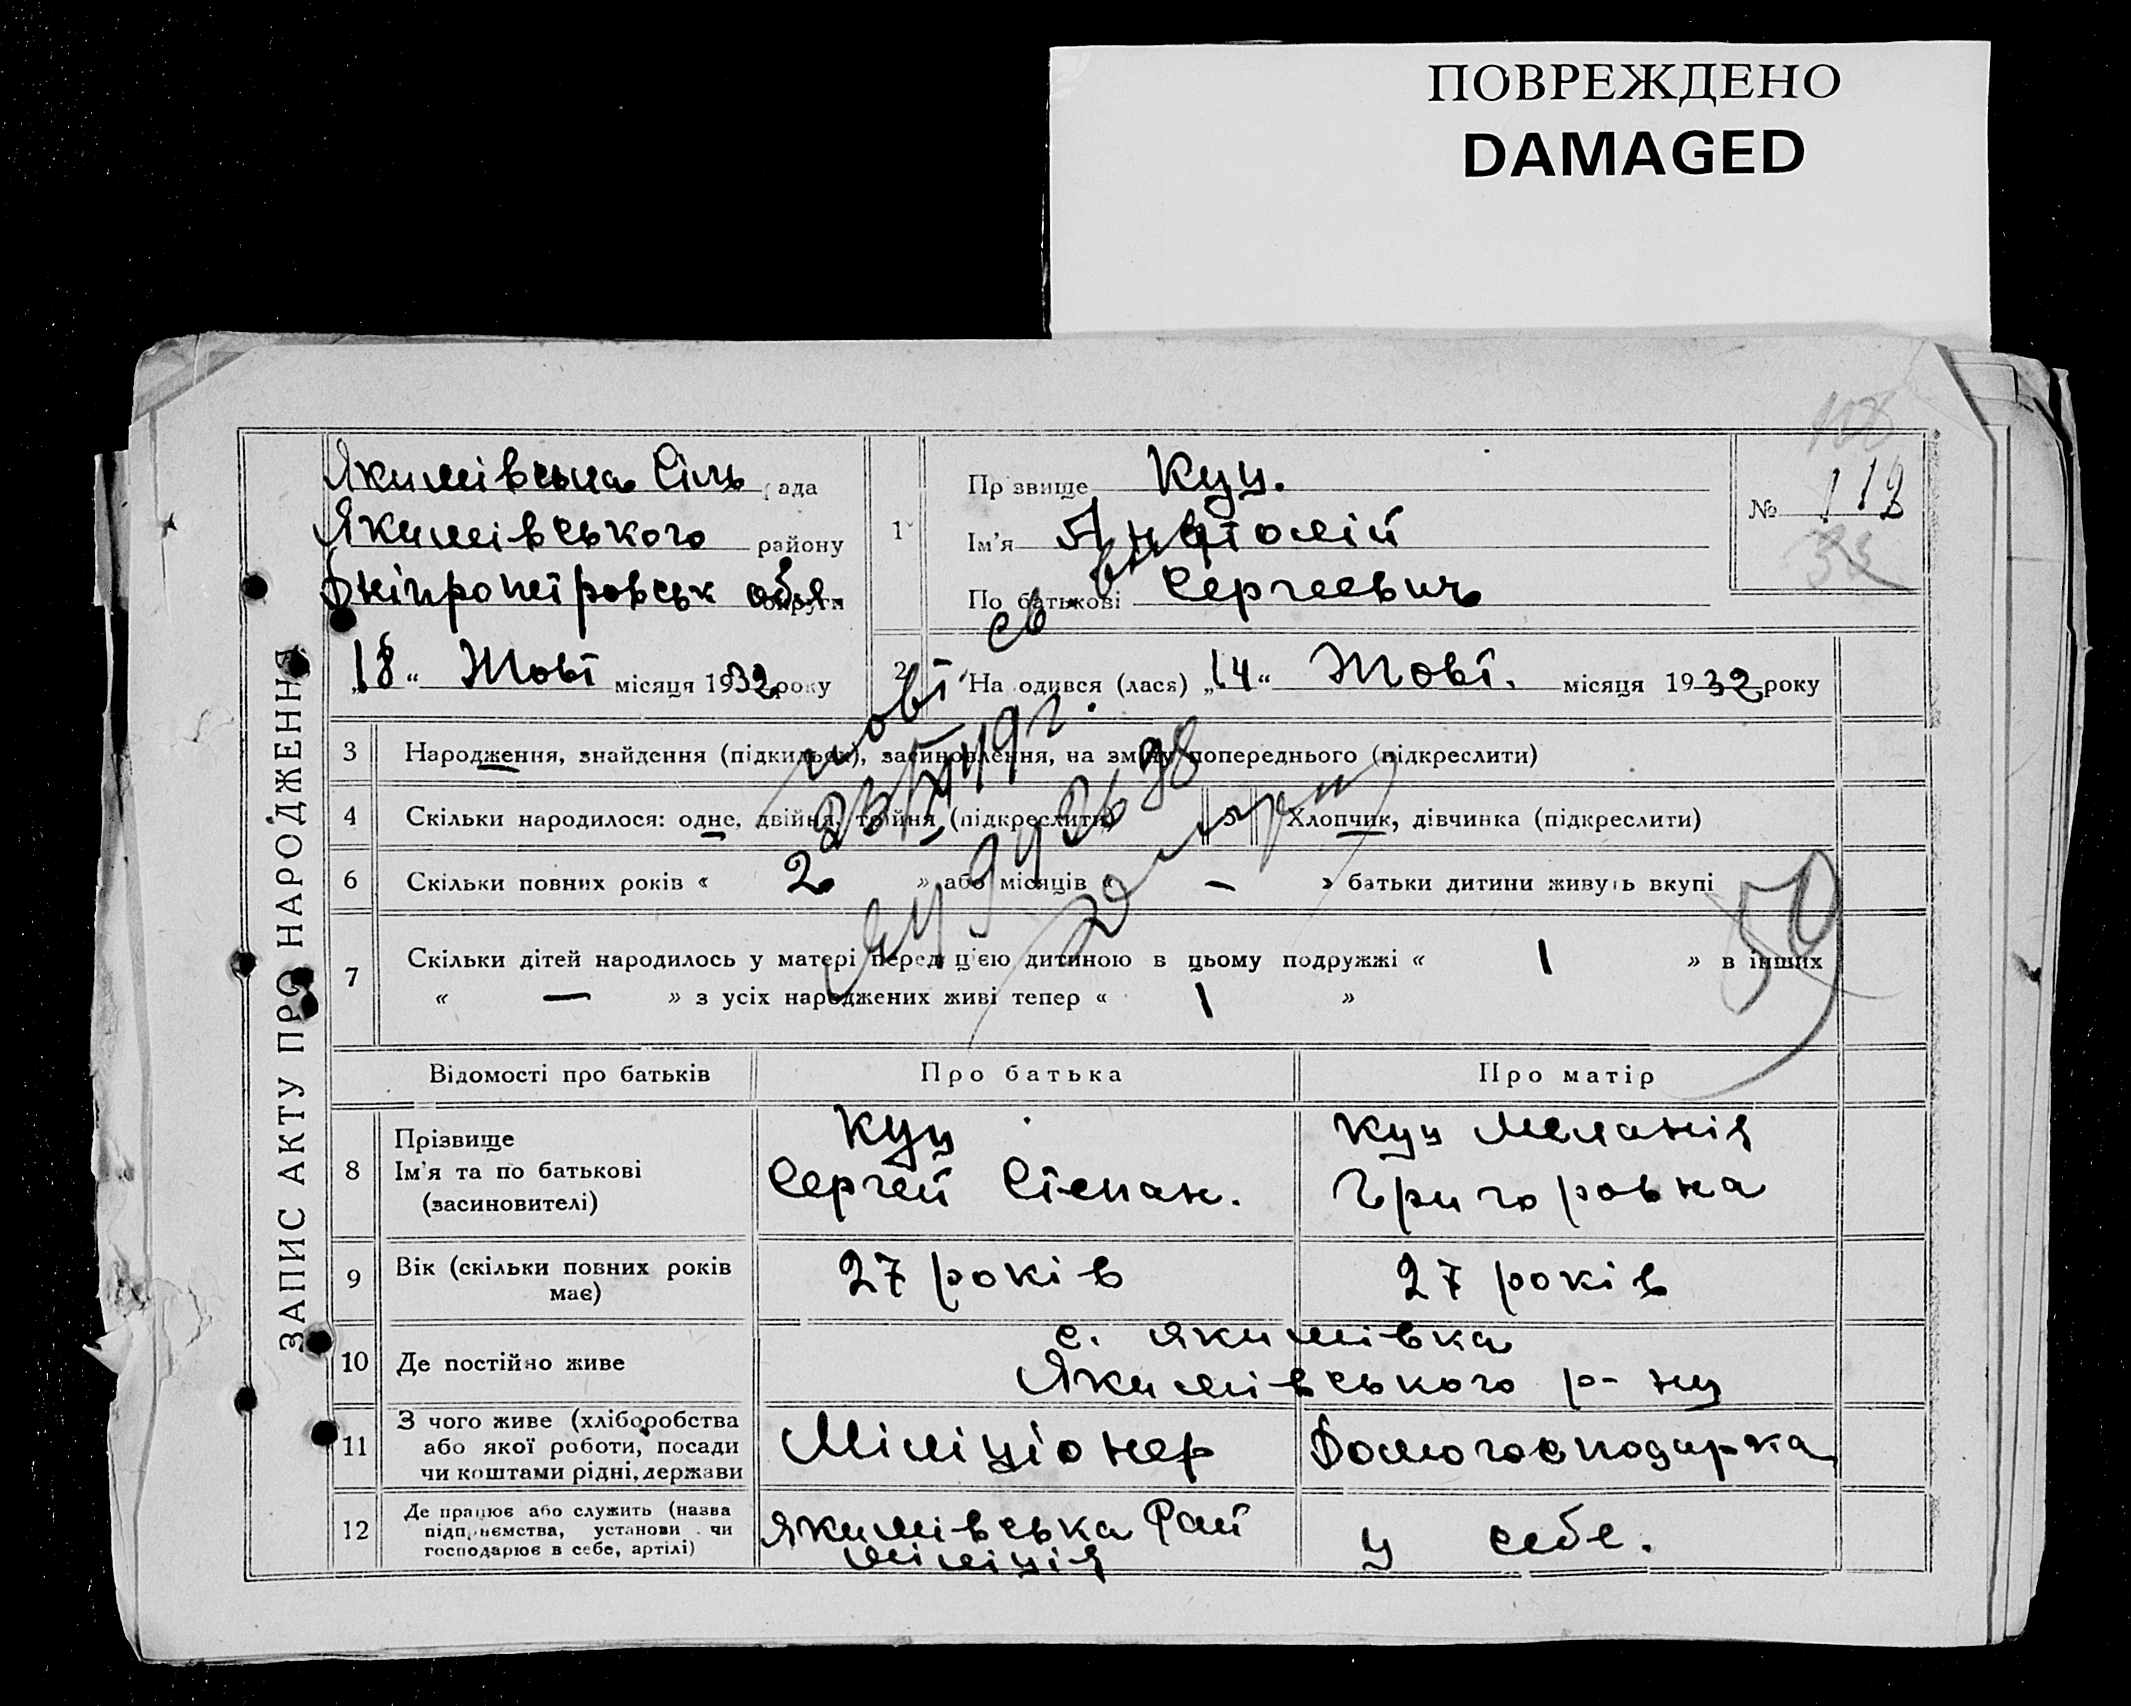 ПОВРЕЖДЕНО
DAMAGED
ЗАПИС АКТУ ПРО НАРОДЖЕННЯ
Якимівська Сіль рада
Якимівського району
Дніпропетровськ обл. округи
„18“ Жовт місяця 1932 року
1
Прізвище Куц.
Ім'я Анатолій
По батькові Сергеевич
№ 112
2 Народився (лася) „14“ Жовт. місяця 1932 року
3 Народження, знайдення (підкидьок), засиновлення, на зміну попереднього (підкреслити)
4 Скільки народилося: одне, двійня, трійня (підкреслити) 5 Хлопчик, дівчинка (підкреслити)
6 Скільки повних років « 2 » або місяців « — » батьки дитини живуть вкупі
7 Скільки дітей народилось у матері перед цією дитиною в цьому подружжі « 1 » в інших
« — » з усіх народжених живі тепер « 1 »
59
Відомості про батьків Про батька Про матір
8 Прізвище
Ім'я та по батькові
(засиновителі)
Куц
Сергей Степан.
Куц Меланія
Григоровна
9 Вік (скільки повних років
має)
27 років 27 років
10 Де постійно живе
с. Якимівка
Якимівського р-ну
11 З чого живе (хліборобства
або якої роботи, посади
чи коштами рідні, держави
Міліціонер Домогосподарка
12 Де працює або служить (назва
підприємства, установи чи
господарює в себе, артілі)
Якимівська Рай
міліція
у себе.